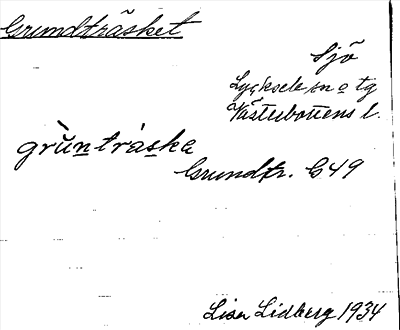 Grundträsket
Sjö
Lycksele sn o tg
Västerbottens l.
grùntráska
Grundtr. G49
Lisa Lidberg 1934